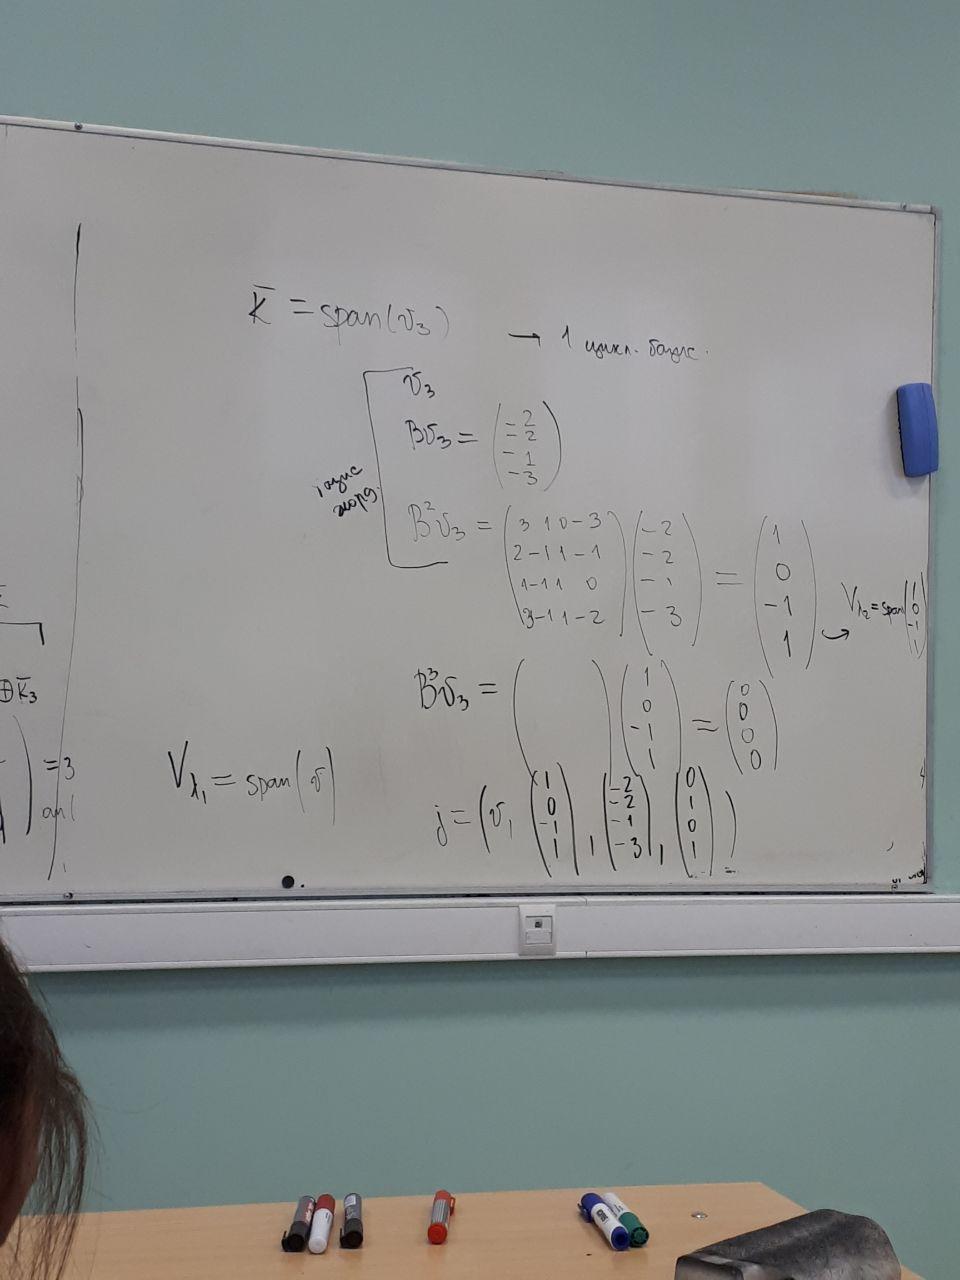 K̄ = span(v₃) → 1 цикл. базис.
v₃
Bv₃ = (-2 -2 -1 -3)
жорд.
B²v₃ = (3 1 0 -3
2 -1 1 -1
1 -1 1 0
3 -1 1 -2) (-2 -2 -1 -3) = (1 0 -1 1) → V_λ₂ = span(1 0 -1 1)
⊕K̄₃
B³v₃ = ( ) (1 0 -1 1) = (0 0 0 0)
) = 3
V_λ₁ = span(v)
j = (v, (1 0 -1 1), (-2 -2 -1 -3), (0 1 0 1))